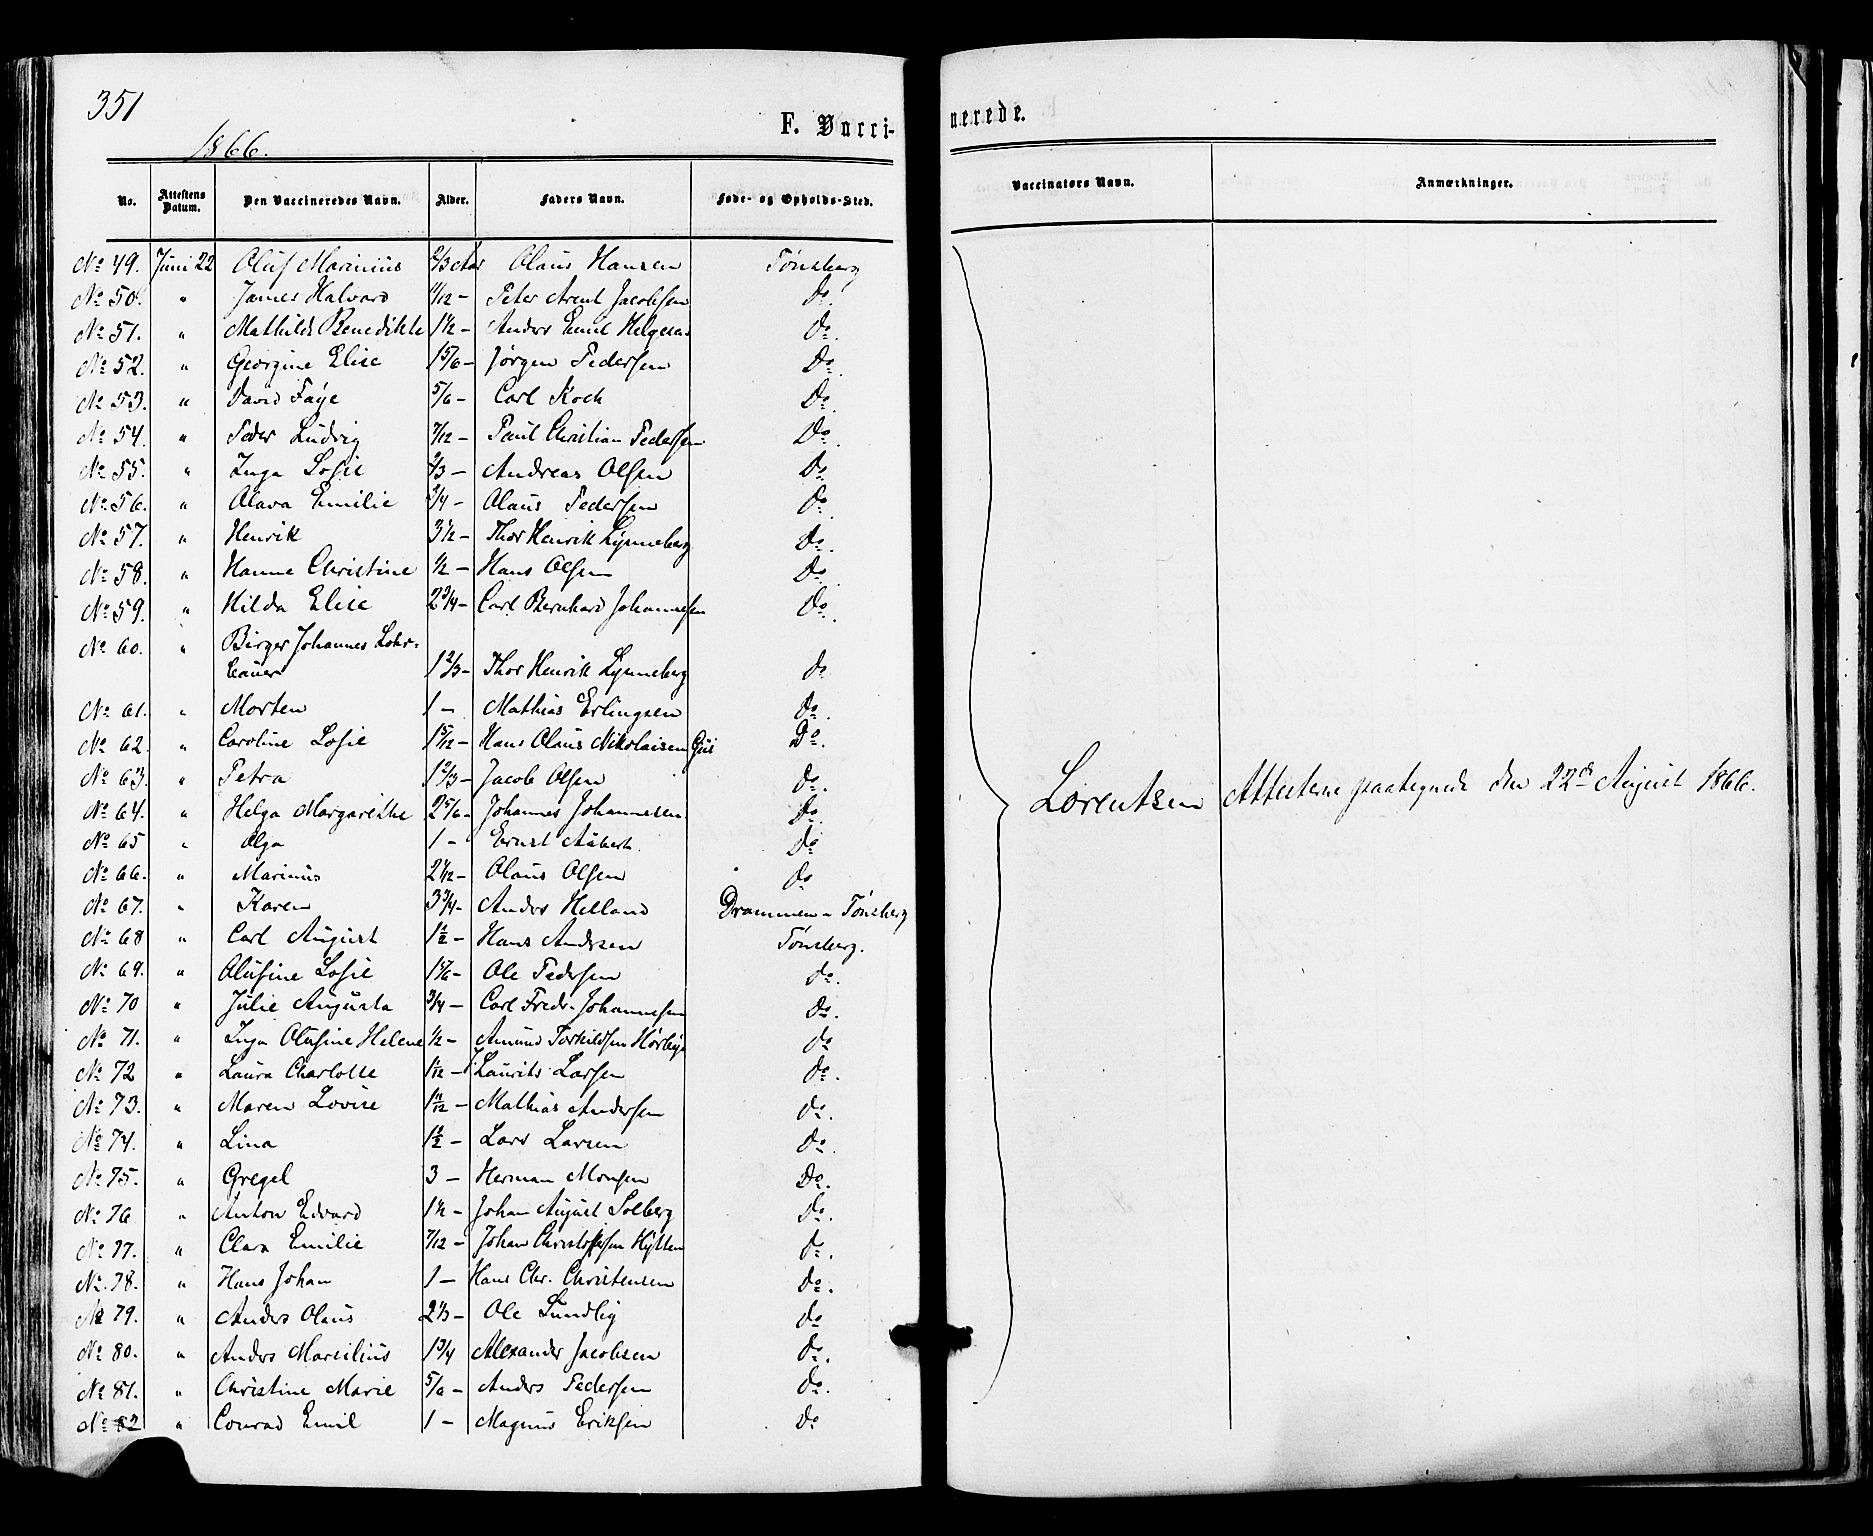 351
1866.
F. Vacci-
nerede.
No. Attestens Datum. Den Vaccineredes Navn. Alder. Faders Navn. Føde- og Opholds-Sted. Vaccinators Navn. Anmærkninger.
No 49. Juni 22 Oluf Marinius 2/3 Aar Olaus Hansen Tönsberg
No 50. " James Halvard 11/12 - Peter Arent Jacobsen Do.
No 51. " Mathilde Benedikte 1 1/2 - Anders Emil Helgesen Do.
No 52. " Georgine Elise 1 5/6 - Jørgen Pedersen Do.
No 53. " David Faye 5/6 - Carl Koch Do.
No 54. " Peder Ludvig 7/12 - Paul Christian Pedersen Do.
No 55. " Inga Sofie 2/3 - Andreas Olsen Do.
No 56. " Olava Emilie 3/4 - Olaus Pedersen Do.
No 57. " Henrik 3 1/2 - Thor Henrik Lynneberg Do.
No 58. " Hanne Christine 1/2 - Hans Olsen Do.
No 59. " Hilda Elise 2 3/4 - Carl Bernhard Johannesen Do.
No 60. " Birger Johannes Lohr-
bauer 1 2/3 - Thor Henrik Lynneberg Do
No 61. " Morten 1 - Mathias Erlingsen Do.
No 62. " Caroline Sofie 1 5/12 - Hans Olaus Nikolaisen Do.
No 63. " Petra 1 2/3 - Jacob Olsen Do.
No 64. " Helga Margarethe 2 5/6 - Johannes Johannesen Do. Lorentzen Attesterne paategnede den 22de August 1866.
No 65 " Olga 1 - Ernst Aubert. Do
No 66. " Marinus 2 1/12 - Olaus Olsen do
No 67. " Karen 3 3/4 - Anders Helland Drammen - Tönsberg
No 68 " Carl August 1 1/2 - Hans Andersen Tönsberg.
No 69. " Olufine Sofie 1 1/6 - Ole Pedersen do.
No 70 " Julie Augusta 3/4 - Carl Fredr. Johannesen Do.
No 71. " Inga Olufine Helene 1/2 - Amund Torkildsen Hörbye do
No 72 " Laura Charlotte 1 1/12 - Laurits Larsen do.
No 73. " Maren Lovise 1 11/12 - Mathias Andersen do.
No 74. " Lina 1 1/2 - Lars Larsen do.
No 75. " Gregel 3 - Herman Monsen Do.
No 76 " Anton Edvard 1 1/2 - Johan August Solberg do.
No 77. " Clara Emilie 7/12 - Johan Christoffersen Hytten do.
No 78. " Hans Johan 1 - Hans Chr. Christensen do.
No 79. " Anders Olaus 2 1/3 - Ole Sundlig do
No 80. " Anders Marsilius 1 3/4 Alexander Jacobsen do.
No 81. " Christine Marie 5/6 - Anders Pedersen do.
No 82 " Conrad Emil 1 - Magnus Eriksen Do